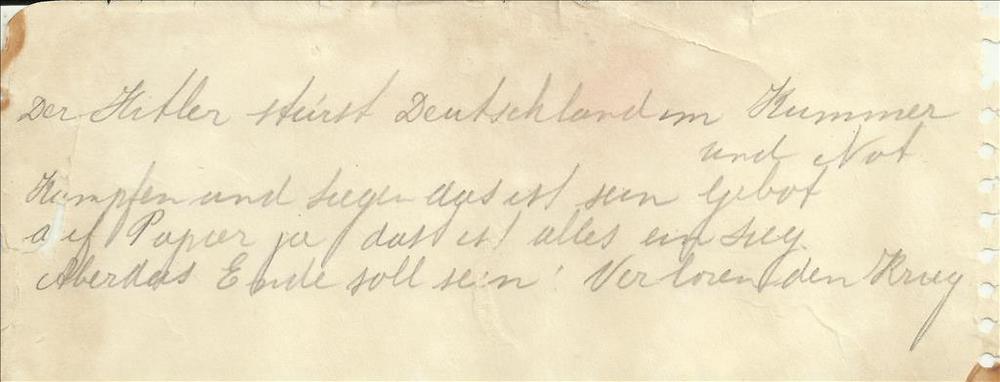 Der Hitler stúrst Deutschland im Kummer
und Not
Kämpfen und siegen das ist sein Gebot
auf Papier ja das ist alles ein sieg
Aber das Ende soll sein! Verloren den Krieg